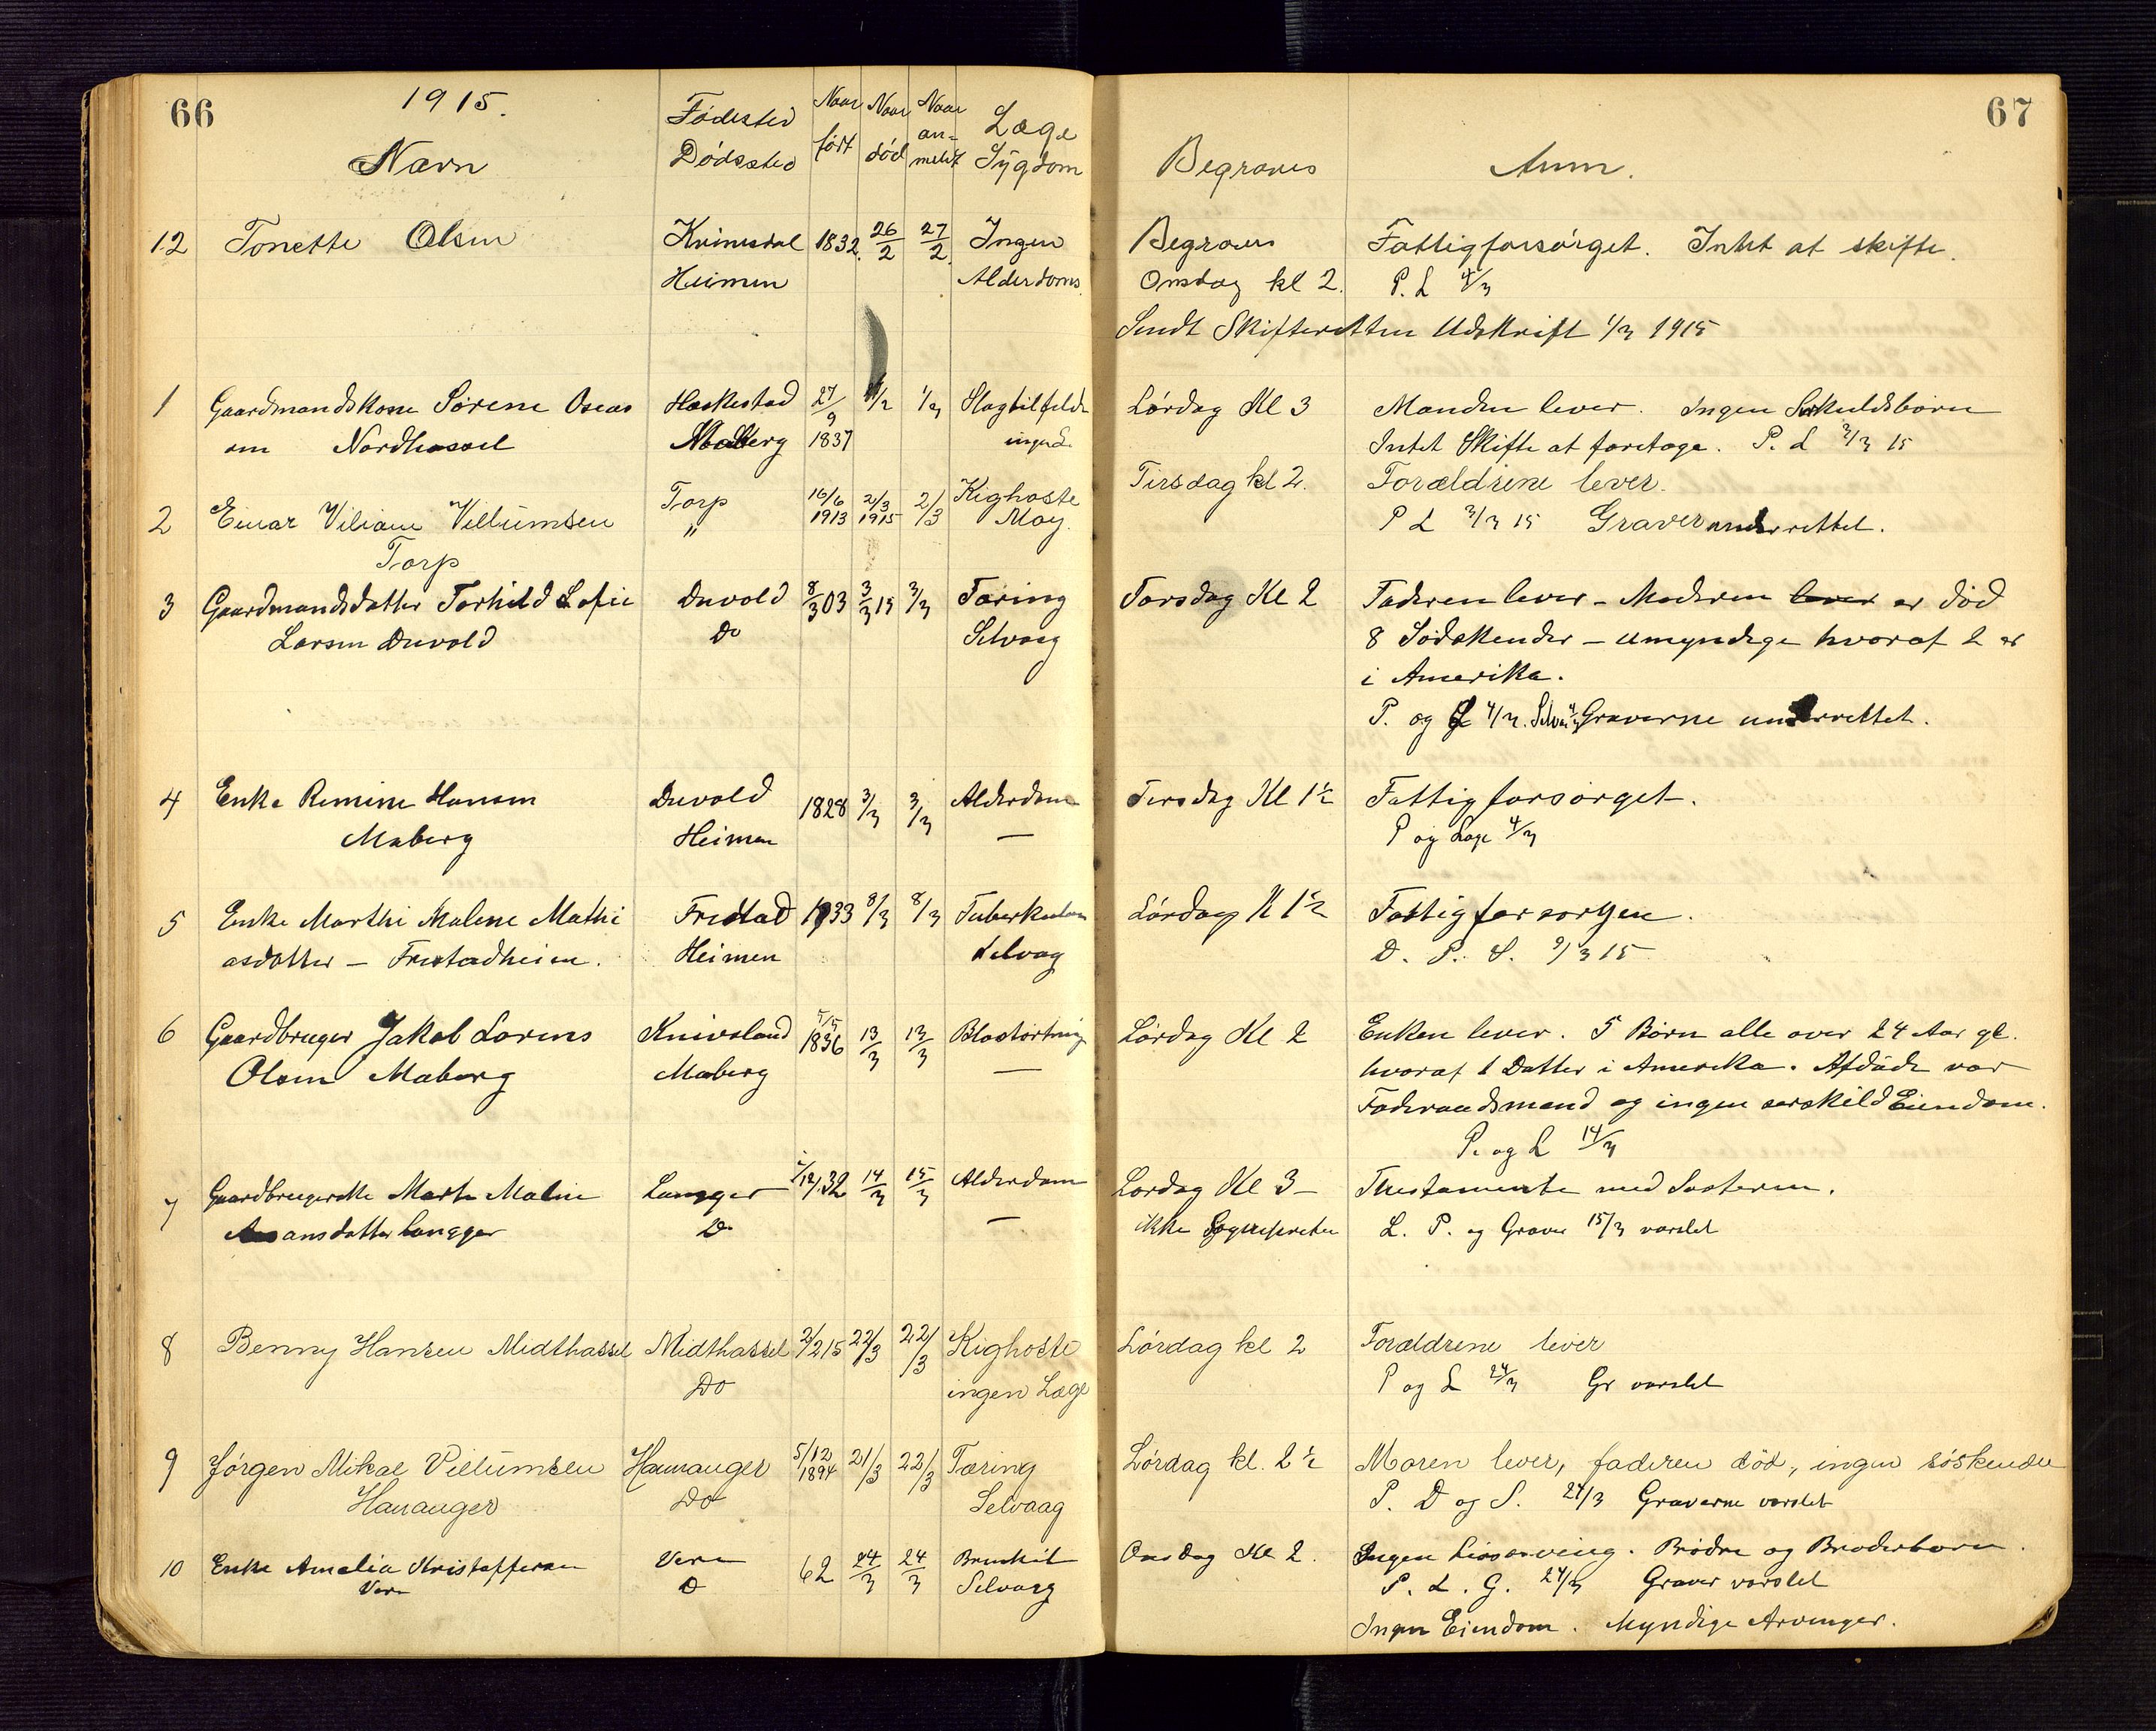 66 1915. 67
Navn Fødested Dødssted Naar født Naar død Naar an-meldt Læge Sygdom Begraves Anm.
12 Tonette Olsen Kvinesdal 1832 26/2 27/2 Ingen Begraves Fattigforsørget. Intet at skifte.
Heimen Alderdoms. Onsdag kl 2. P. L 4/3
Sendt Skifteretten Udskrift 1/3 1915
1 Gaardmandskone Sørine Oseas Haskestad 27/9 1/3 Slagtilfelde Lørdag Kl 3 Manden lever. Ingen Særkuldsbørn
en Nordhassel Maberg 1837 ingen L. Intet Skifte at foretage. P. L 3/3 15
2 Einar Viliam Villumsen Torp 16/6 1913 2/3 1915 2/3 Kighoste Tirsdag kl 2. Forældrene lever.
Torp " May. P L 3/3 15 Graver underrettet.
3 Gaardmandsdatter Torhild Sofie Duvold 8/3 03 3/3 15 3/3 Tæring Torsdag Kl 2 Faderen lever - Moderen lever er død
Larsen Duvold Do Selvaag 8 Sødskender - umyndige hvoraf 2 er
i Amerika.
P. og L 4/3. Graverne underrettet.
4 Enke Remine Hansen Duvold 1828 3/3 3/3 Alderdom Tirsdag Kl 1½ Fattigforsørget.
Maberg Heimen — P og Læge 4/3
5 Enke Marthe Malene Mathi Frestad 1833 8/3 8/3 Tuberkulose Lørdag Kl 1½ Fattigforsorgen.
asdatter - Frestadheim. Heimen Selvag D. P. S. 9/3 15
6 Gaardbruger Jakob Lorens Knivsland 5/5 1836 13/3 13/3 Blastørtning Lørdag Kl 2 Enken lever. 5 Børn alle over 24 Aar gl.
Olsen Maberg Maberg — hvoraf 1 Datter i Amerika. Afdøde var
Føderaadsmand og ingen særskild Eiendom.
P. og L 14/3
7 Gaardbrugerske Marte Malie Langger /12 32 14/3 15/3 Alderdom Lørdag Kl 3 - Thestamente med Søsteren.
ansdatter Langger D. — ikke L. P. og Graver 15/3 varslet
8 Benny Hansen Midthassel Midthassel 2/2 15 22/3 22/3 Kighoste Lørdag kl 2 Forældrene lever
Do ingen Læge P og L 24/3 Gr varslet
9 Jørgen Mikal Villumsen Hananger 5/12 1894 21/3 22/3 Tæring Lørdag kl. 2½ Moren lever, faderen død, ingen søskende
Hananger Do Selvaag P. D og S. 24/3 Graverne varslet
10 Enke Amalia Kristoffersen Vere 62 24/3 24/3 Bronkit Onsdag Kl 2. Ingen Livsarving. Brødre og Broderbørn.
Vere D Selvaag P. L. G. 24/3 Graver varslet
Ingen Eiendom. Myndige Arvinger.